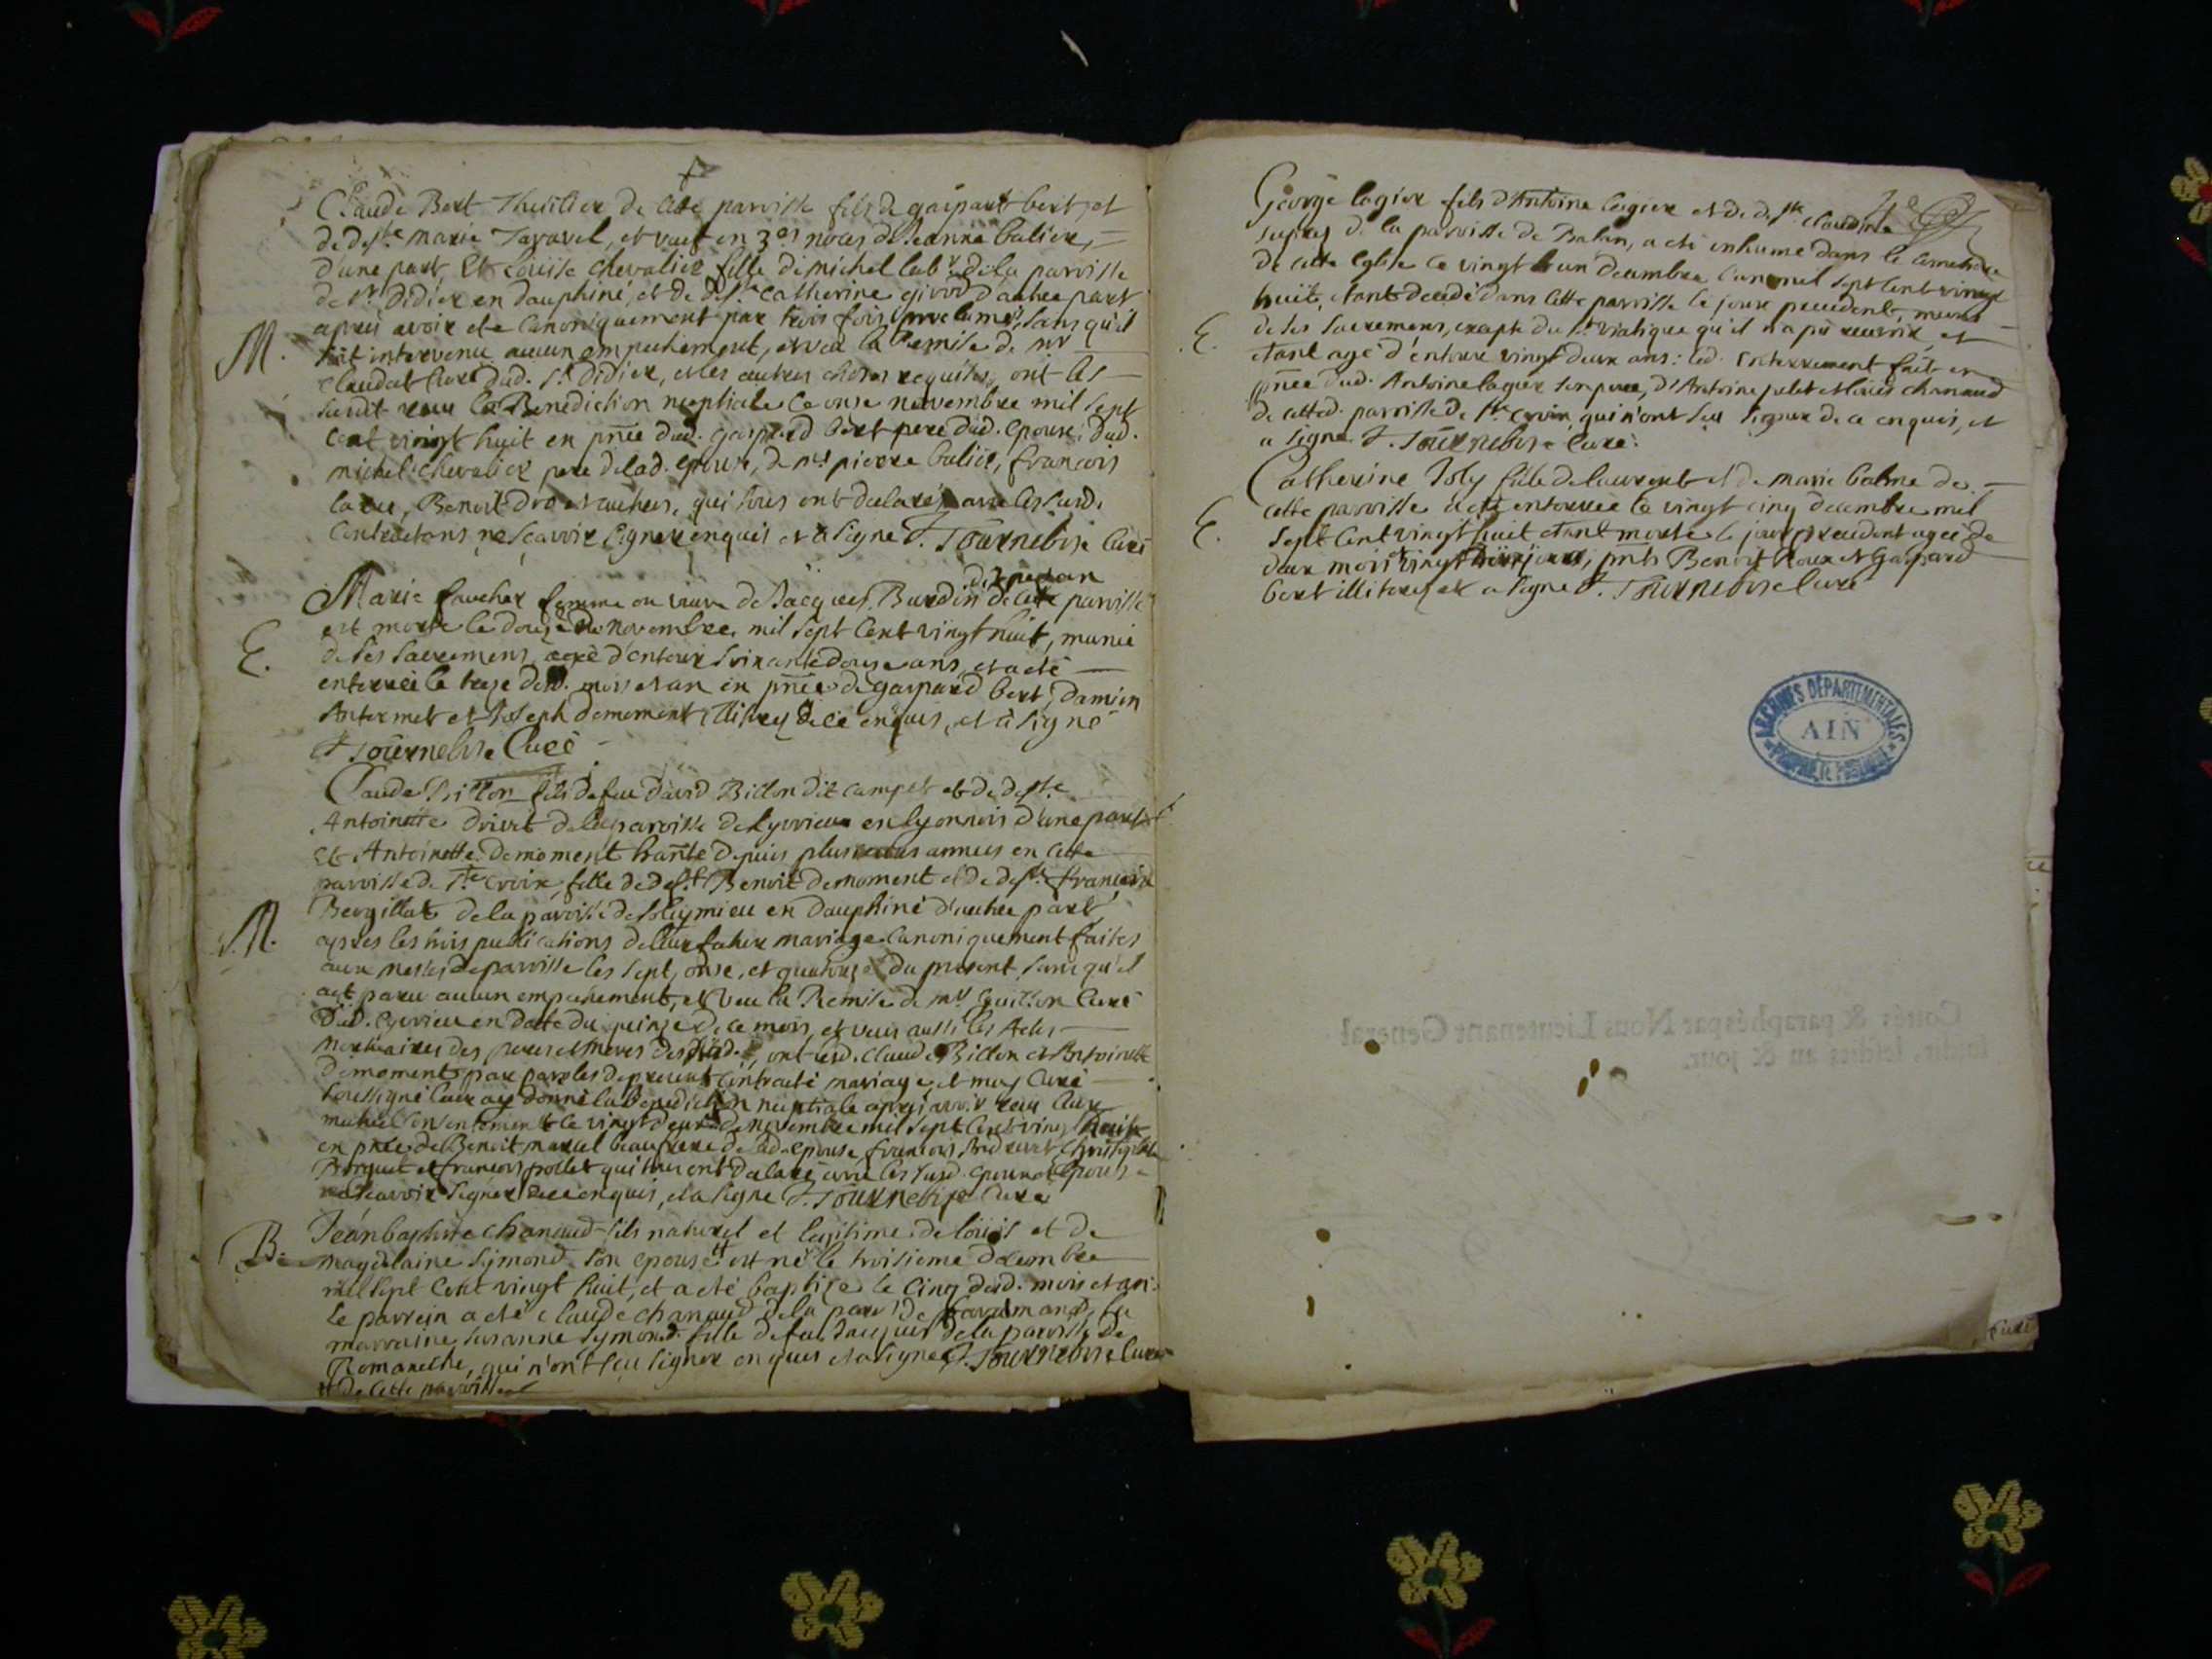 Claude Bert Thuilier de cette paroisse fils de gaspart bert, et
de defte marie Taravel, et veuf en 3es noces de Jeanne balier,
d'une part, Et Louïse chevalier fille de michel labr de la paroisse
de St Didier en dauphiné, et de defte Catherine givod d'autre part
apres avoir ete canoniquement par trois fois proclamés, sans qu'il
M. soit intervenu aucun empechement, et veu la Remise de mr
claudat Curé dud. St Didier, et les autres choses requises, ont les
susdt receu la Benediction nuptiale le onse novembre mil sept
cent vingt huit en pñce dud. gaspard bert pere dud. epoux, dud.
michel chevalier pere de lad. epouse, de me pierre balier, francois
Benoit dro et autres, qui tous ont declarés avec les susd.
contractans ne sçavoir signer enquis et a signé J. Tournebise Curé
Marie faucher femme ou veuve de Jacques Burdin de cette paroisse
est morte le douze de novembre mil sept cent vingt huit, munie
E. de ses sacremens, agée d'entour soixante douse ans, et a eté
enterrée le treze desd. mois et an en pñce de gaspard bert, damien
Antermet et Joseph demoment illitrez de ce enquis, et a signé
J Tournebise Curé
Claude Billon fils de feu david Billon dit campet et de defte
Antoinette drivet de la paroisse de Lyvrieux en lyonnois d'une part
Et Antoinette demoment hañte depuis plusieurs années en cette
paroisse de Ste croix, fille de deft Benoit demoment et de defte francoise
Bergillat de la paroisse de soleymieu en dauphiné d'autre part,
M. apres les trois publications de leur futur mariage canoniquement faites
aux messes de paroisse les sept, onse, et quatorze du present, sans qu'il
ait paru aucun empechement, et veu la Remise de mr Guillon Curé
dud. Lyvrieu en datte du quinze de ce mois, et veus aussi les Actes
mortuaires des peres et meres desd., ont lesd. claude Billon et Antoinette
demoment par paroles de present contracté mariage, et moy Curé
soussigné leur ay donné la Benediction nuptiale apres avoir receu leur
mutuel consentement le vingt deux de novembre mil sept cent vingt huit
en pñce de Benoit marcel beaufrere de lad. epouse, francois
et francois qui tous ont declaré avec les susd. epoux et epouse
ne sçavoir signer de ce enquis, et a signé J. Tournebise Curé
B. Jeanbaptiste chanaud fils naturel et legitime de loüis et de
magdelaine symond son epouse est né le troisieme decembre
mil sept cent vingt huit, et a eté baptizé le cinq desd. mois et an.
Le parrein a eté claude chanaud de la parr. de la
marraine susanne symond fille de feu Jacques de la paroisse de
Romaneche, qui n'ont sçu signer enquis et a signé J. Tournebise Curé
de cette paroisse
George lagier fils d'Antoine lagier et de defte claudine
de la paroisse de Balan, a eté inhumé dans le cimetiere
de cette Eglise le vingt et un decembre l'an mil sept cent vingt
huit, etant decedé dans cette paroisse le jour precedent, muni
E. de ses sacremens, excepté du St viatique qu'il n'a pu recevoir, et
etant agé d'entour vingt deux ans: led. Enterrement fait en
pñce dud. Antoine lagier son pere, d'Antoine petit et loüis chanaud
de cetted. paroisse de Ste croix, qui n'ont sçu signer de ce enquis, et
a signé J. Tournebise Curé.
Catherine Joly fille de laurent et de marie balme de
cette paroisse a eté enterrée le vingt cinq decembre mil
E. sept cent vingt huit etant morte le jour precedent agée de
deux mois et vingt jours, pñts Benoit Roux et Gaspard
bert illiterez et a signé J. Tournebise Curé
ARCHIVES DÉPARTEMENTALES
AIN
PROPRIÉTÉ PUBLIQUE
Cottés & paraphés par Nous Lieutenant General
susdit, lesdits an & jour.